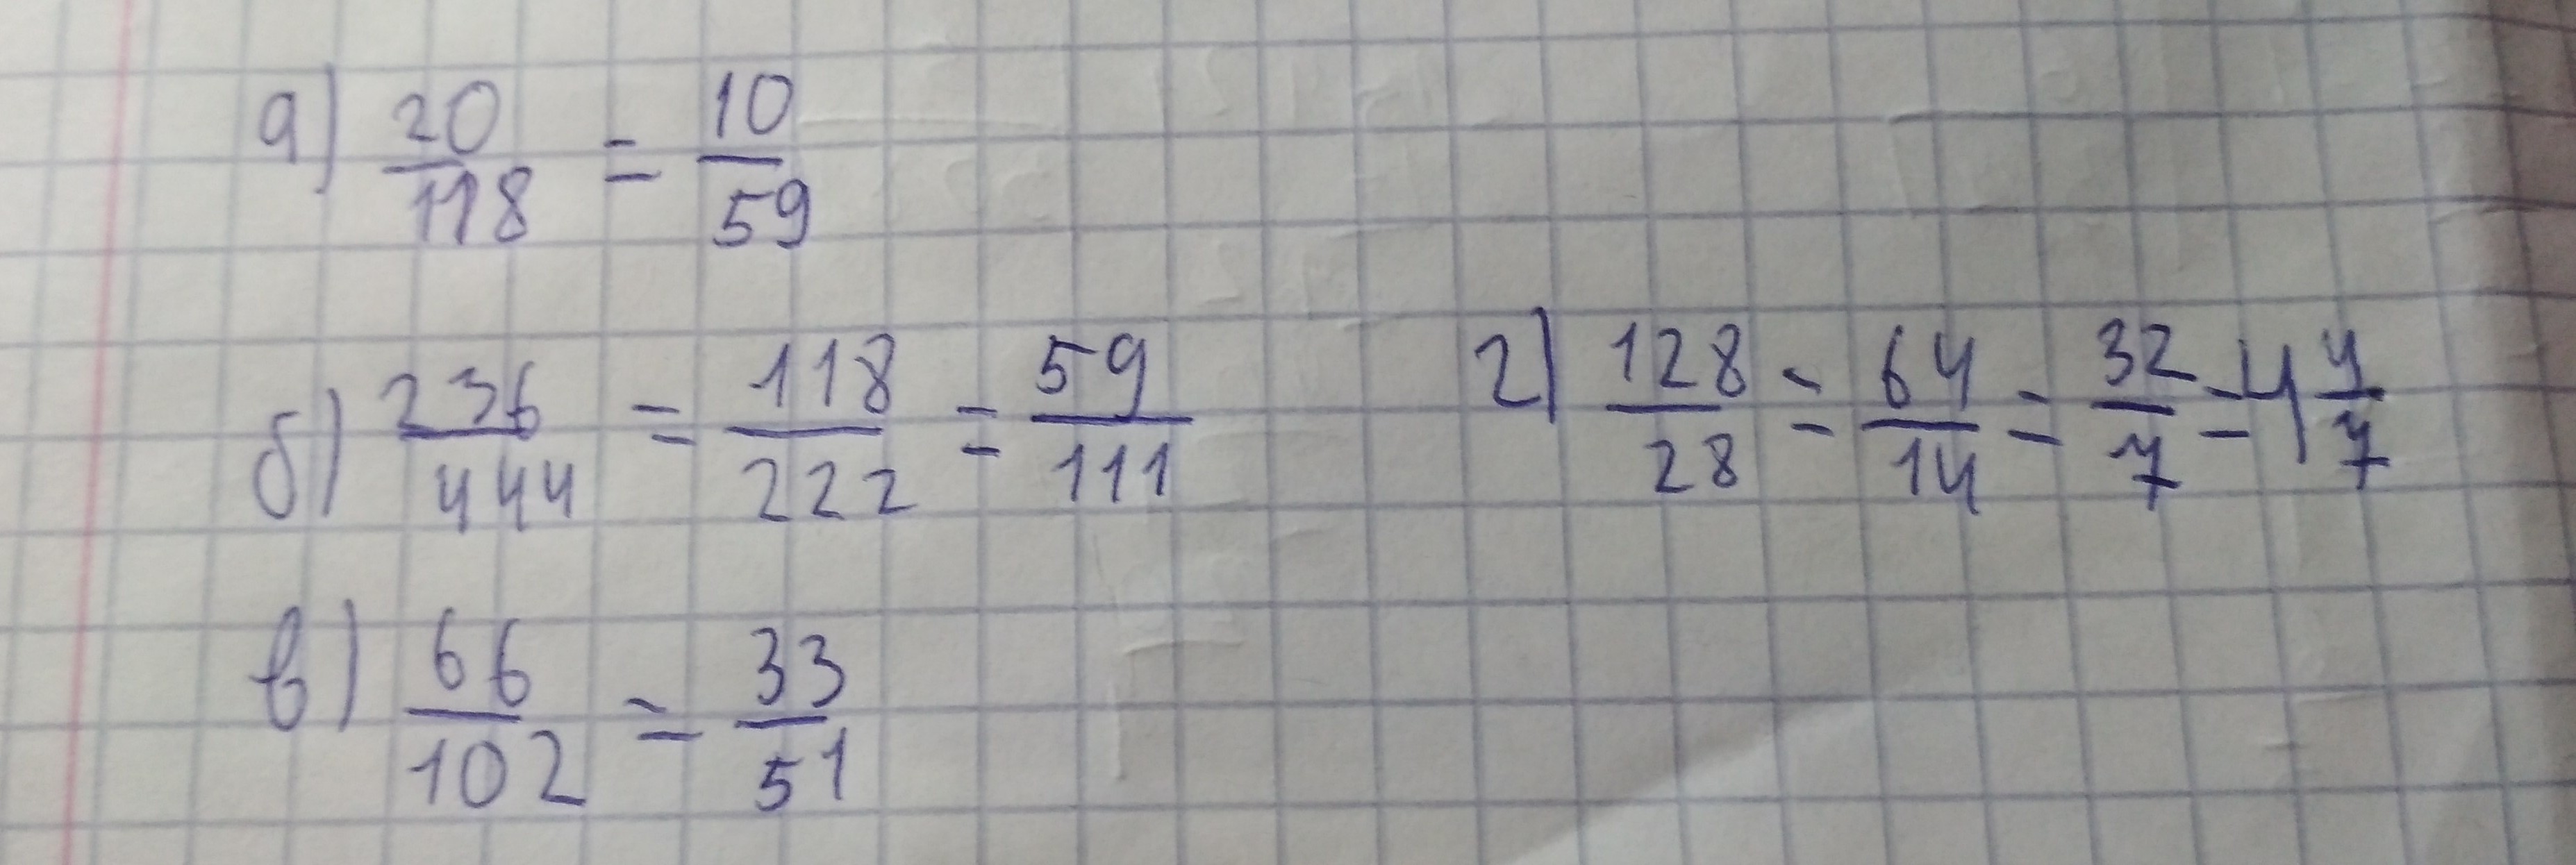 а) 20/118 = 10/59
б) 236/444 = 118/222 = 59/111
г) 128/28 = 64/14 = 32/7 = 4 4/7
в) 66/102 = 33/51